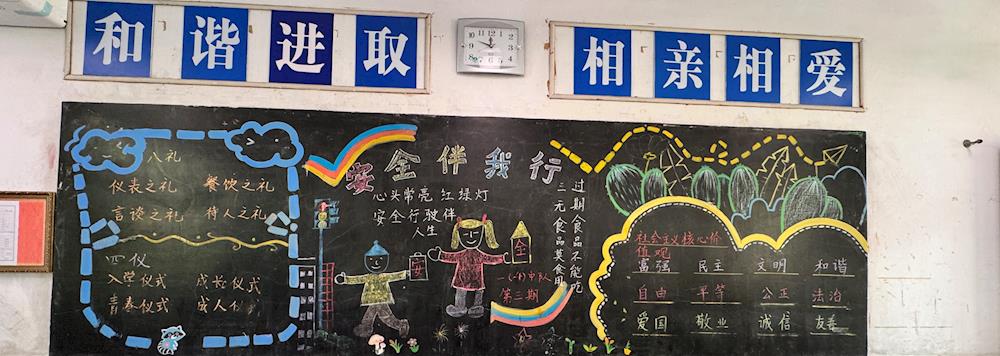 和谐进取
相亲相爱
八礼
仪表之礼 餐饮之礼
言谈之礼 待人之礼
四仪
入学仪式 成长仪式
青春仪式 成人仪式
安全伴我行
心头常亮 红绿灯
安全行驶伴
人生
过期食品不能吃
三无食品莫食用
安
全
一(1)中队
第二期
社会主义核心价
值观
富强 民主 文明 和谐
自由 平等 公正 法治
爱国 敬业 诚信 友善